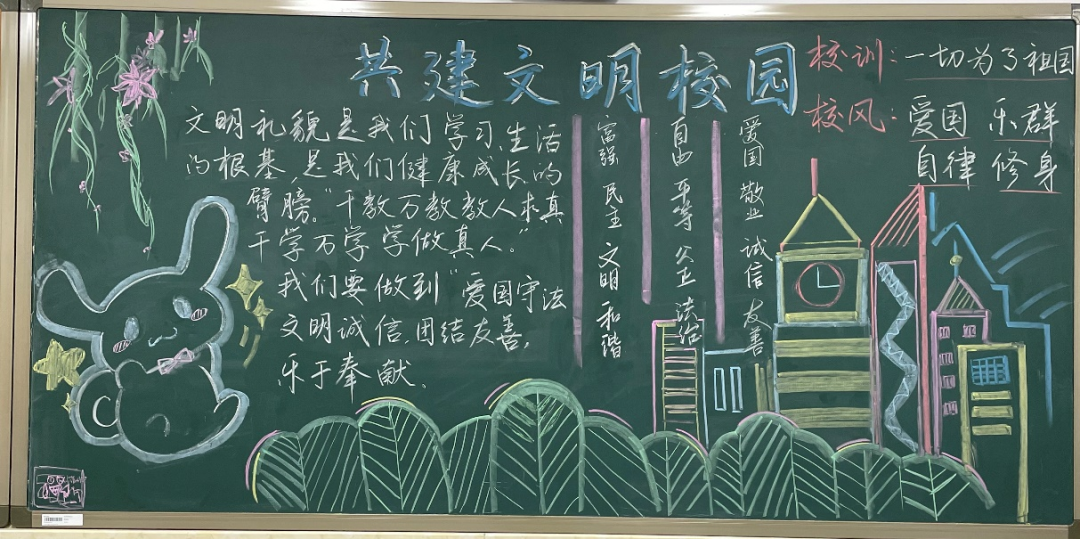 共建文明校园
校训:一切为了祖国
校风:爱国 乐群
自律 修身
文明礼貌是我们学习、生活
的根基,是我们健康成长的
臂膀。“千教万教教人求真
千学万学学做真人。”
我们要做到“爱国守法
文明诚信,团结友善,
乐于奉献、
富强 民主 文明 和谐
自由 平等 公正 法治
爱国 敬业 诚信 友善